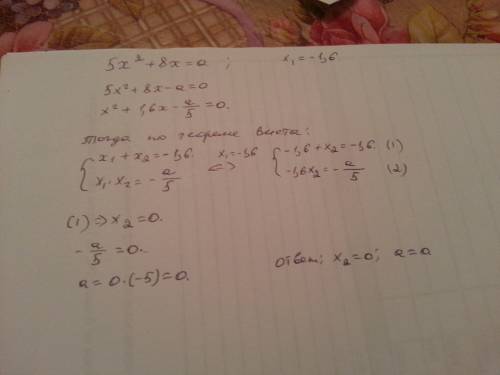 5x² + 8x = a ; x₁ = -1,6
5x² + 8x - a = 0
x² + 1,6x - a/5 = 0.
Тогда по теореме Виета:
{ x₁ + x₂ = -1,6. x₁ = -1,6 <=> { -1,6 + x₂ = -1,6. (1)
{ x₁ · x₂ = - a/5 { -1,6x₂ = - a/5 (2)
(1) => x₂ = 0.
- a/5 = 0.
a = 0 · (-5) = 0.
Ответ: x₂ = 0; a = 0